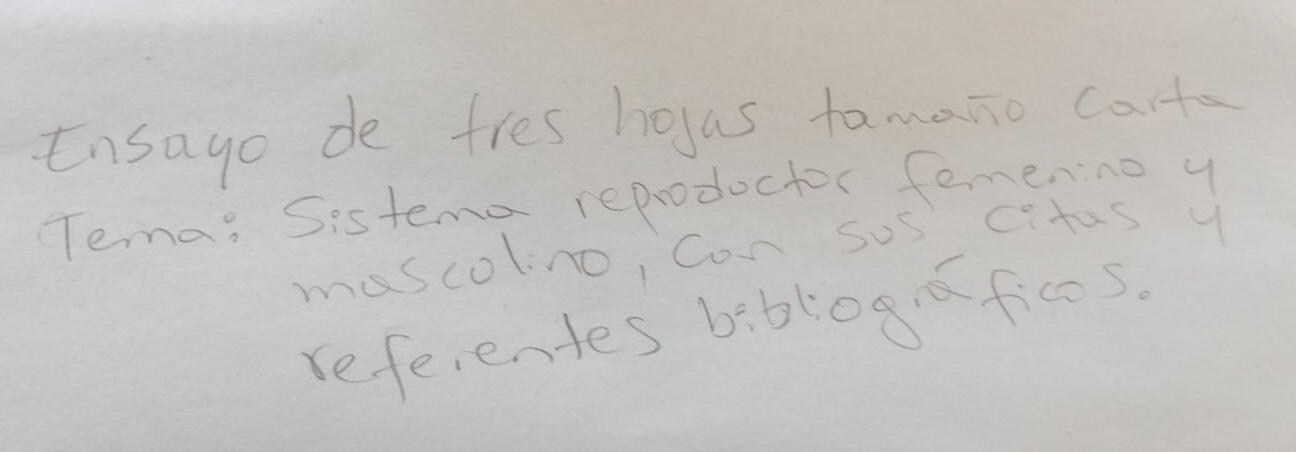 Ensayo de tres hojas tamaño carta
Tema: Sistema reproductor femenino y
mascolino, con sus citas y
referentes bibliográficos.